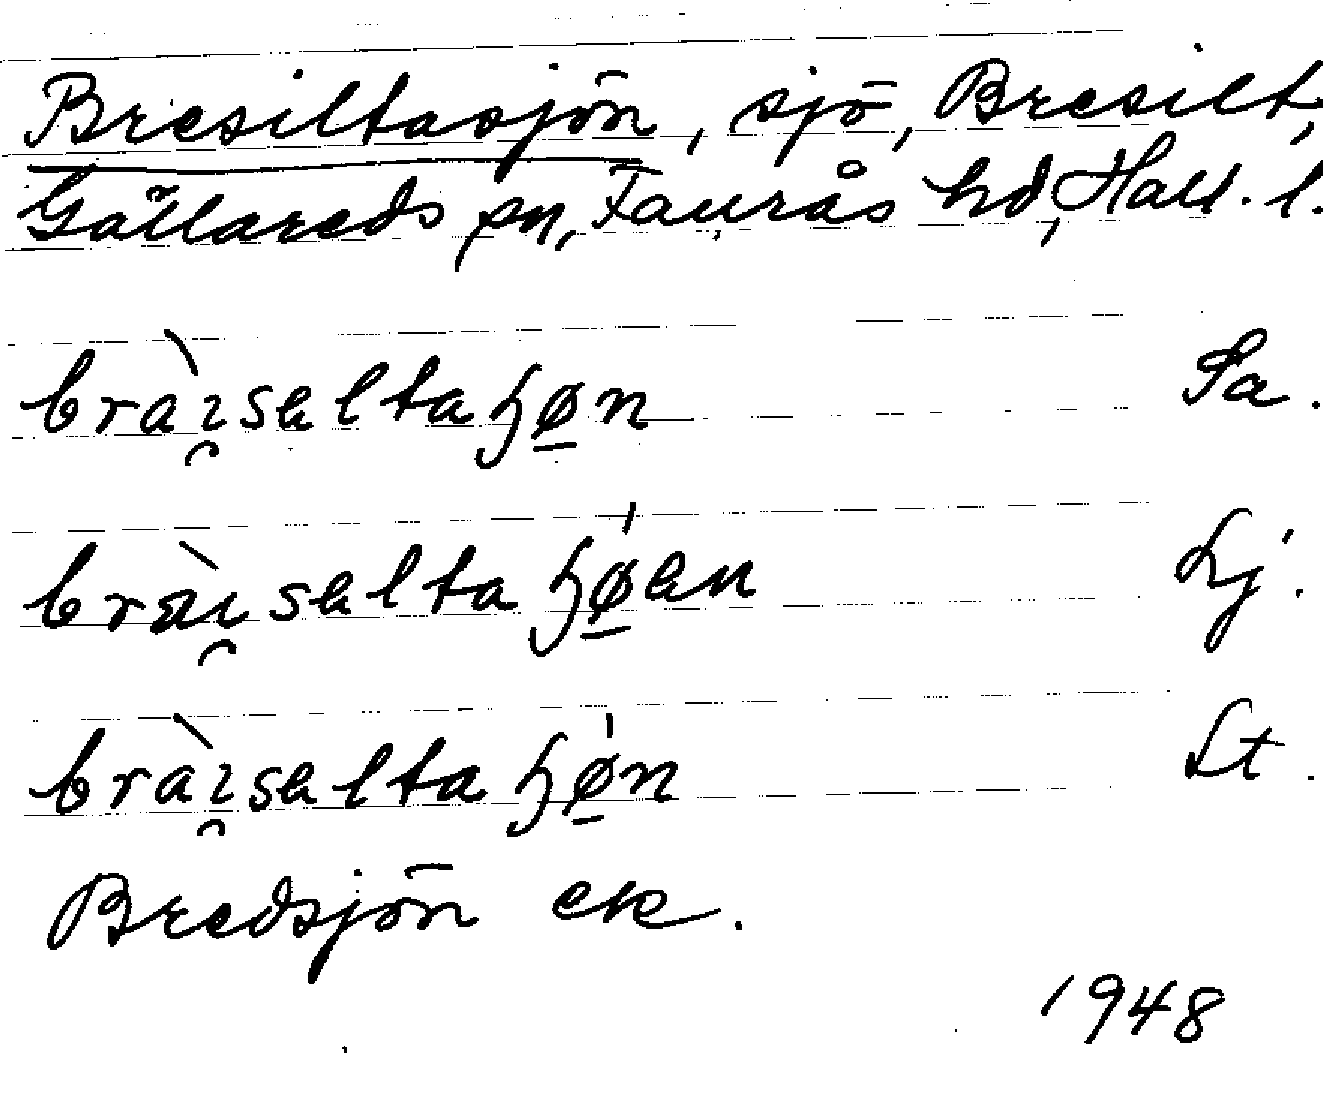 Bresiltasjön, sjö, Bresilt,
Gällareds sn, Faurås hd, Hall. l.
bràɪ̯səltaɧø̱n Sa.
bràɪ̯səltaɧǿ̱ən Lj.
bràɪ̯səltaɧǿ̱n Lt.
Bredsjön ek.
1948